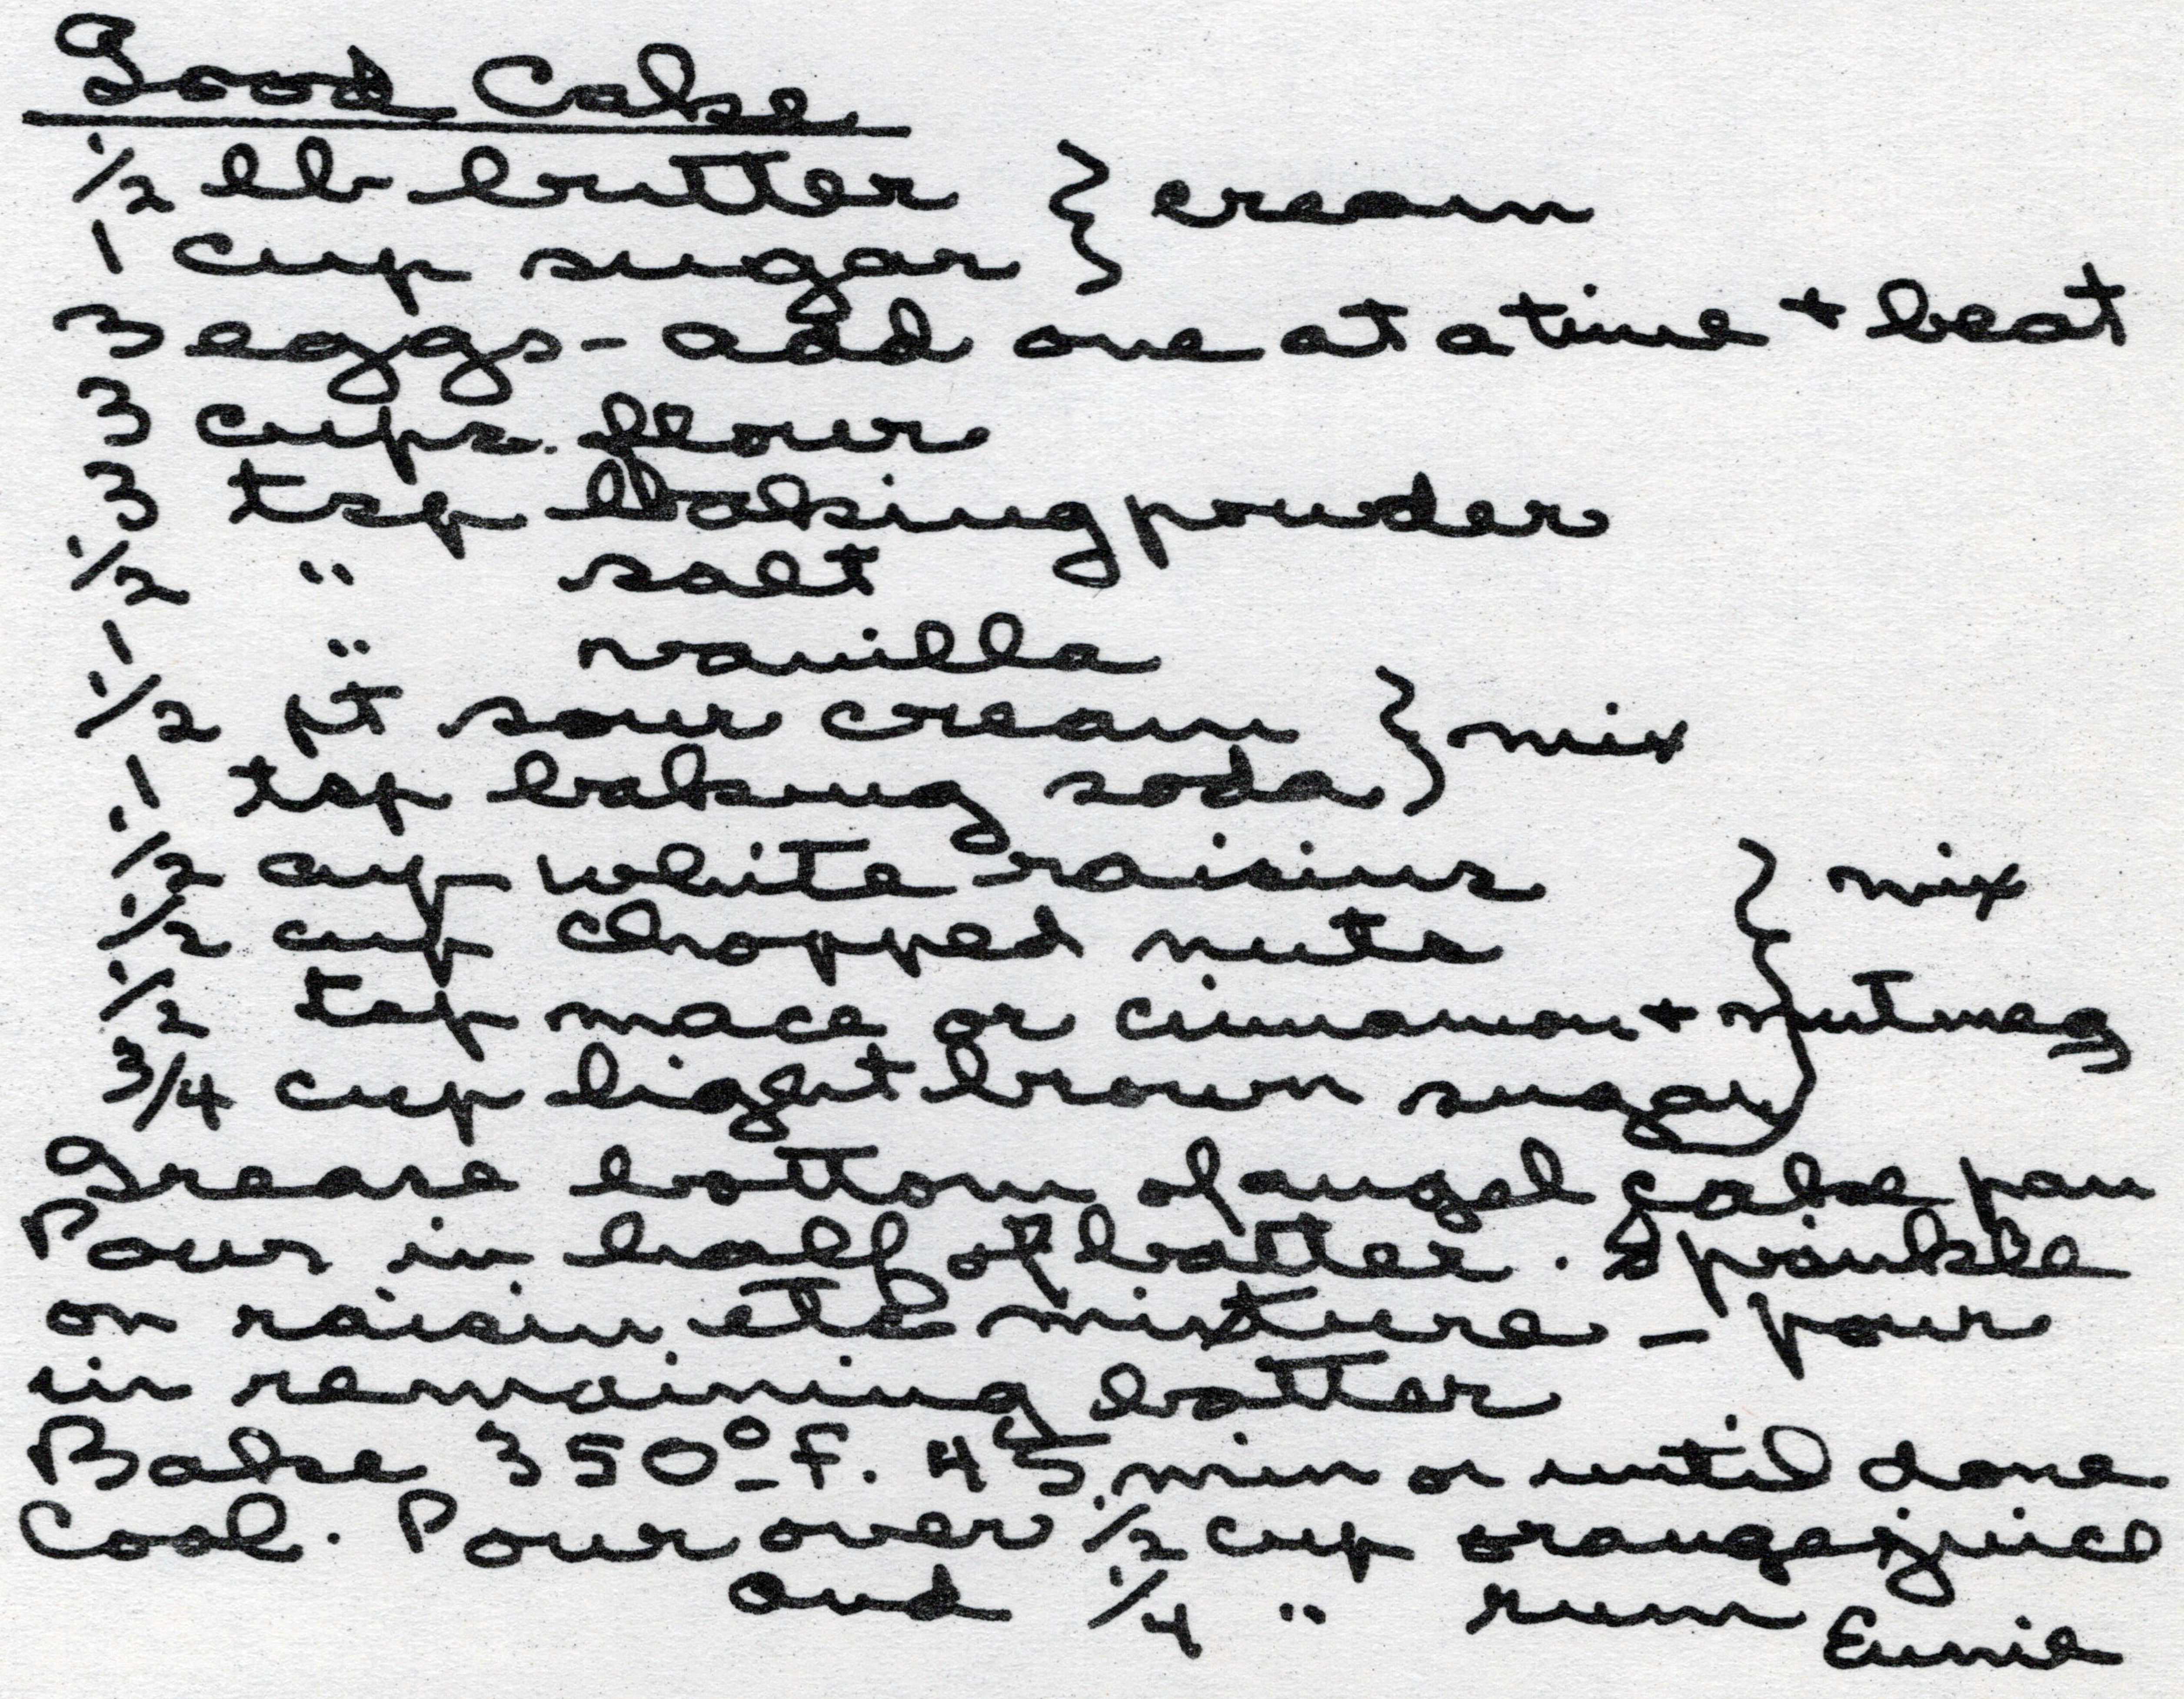 Good Cake
1/2 lb butter } cream
1 cup sugar
3 eggs - add one at a time + beat
3 cups. flour
3 tsp baking powder
1/2 " salt
1 " vanilla
1/2 pt sour cream } mix
1 tsp baking soda
1/2 cup white raisins } mix
1/2 cup chopped nuts
1/2 tsp mace or cinnamon + nutmeg
3/4 cup light brown sugar
Grease bottom of angel cake pan
Pour in half of batter. Sprinkle
on raisin etc mixture - pour
in remaining batter
Bake 350° F. 45 min or until done
Cool. Pour over 1/2 cup orange juice
and 1/4 " rum Eunie